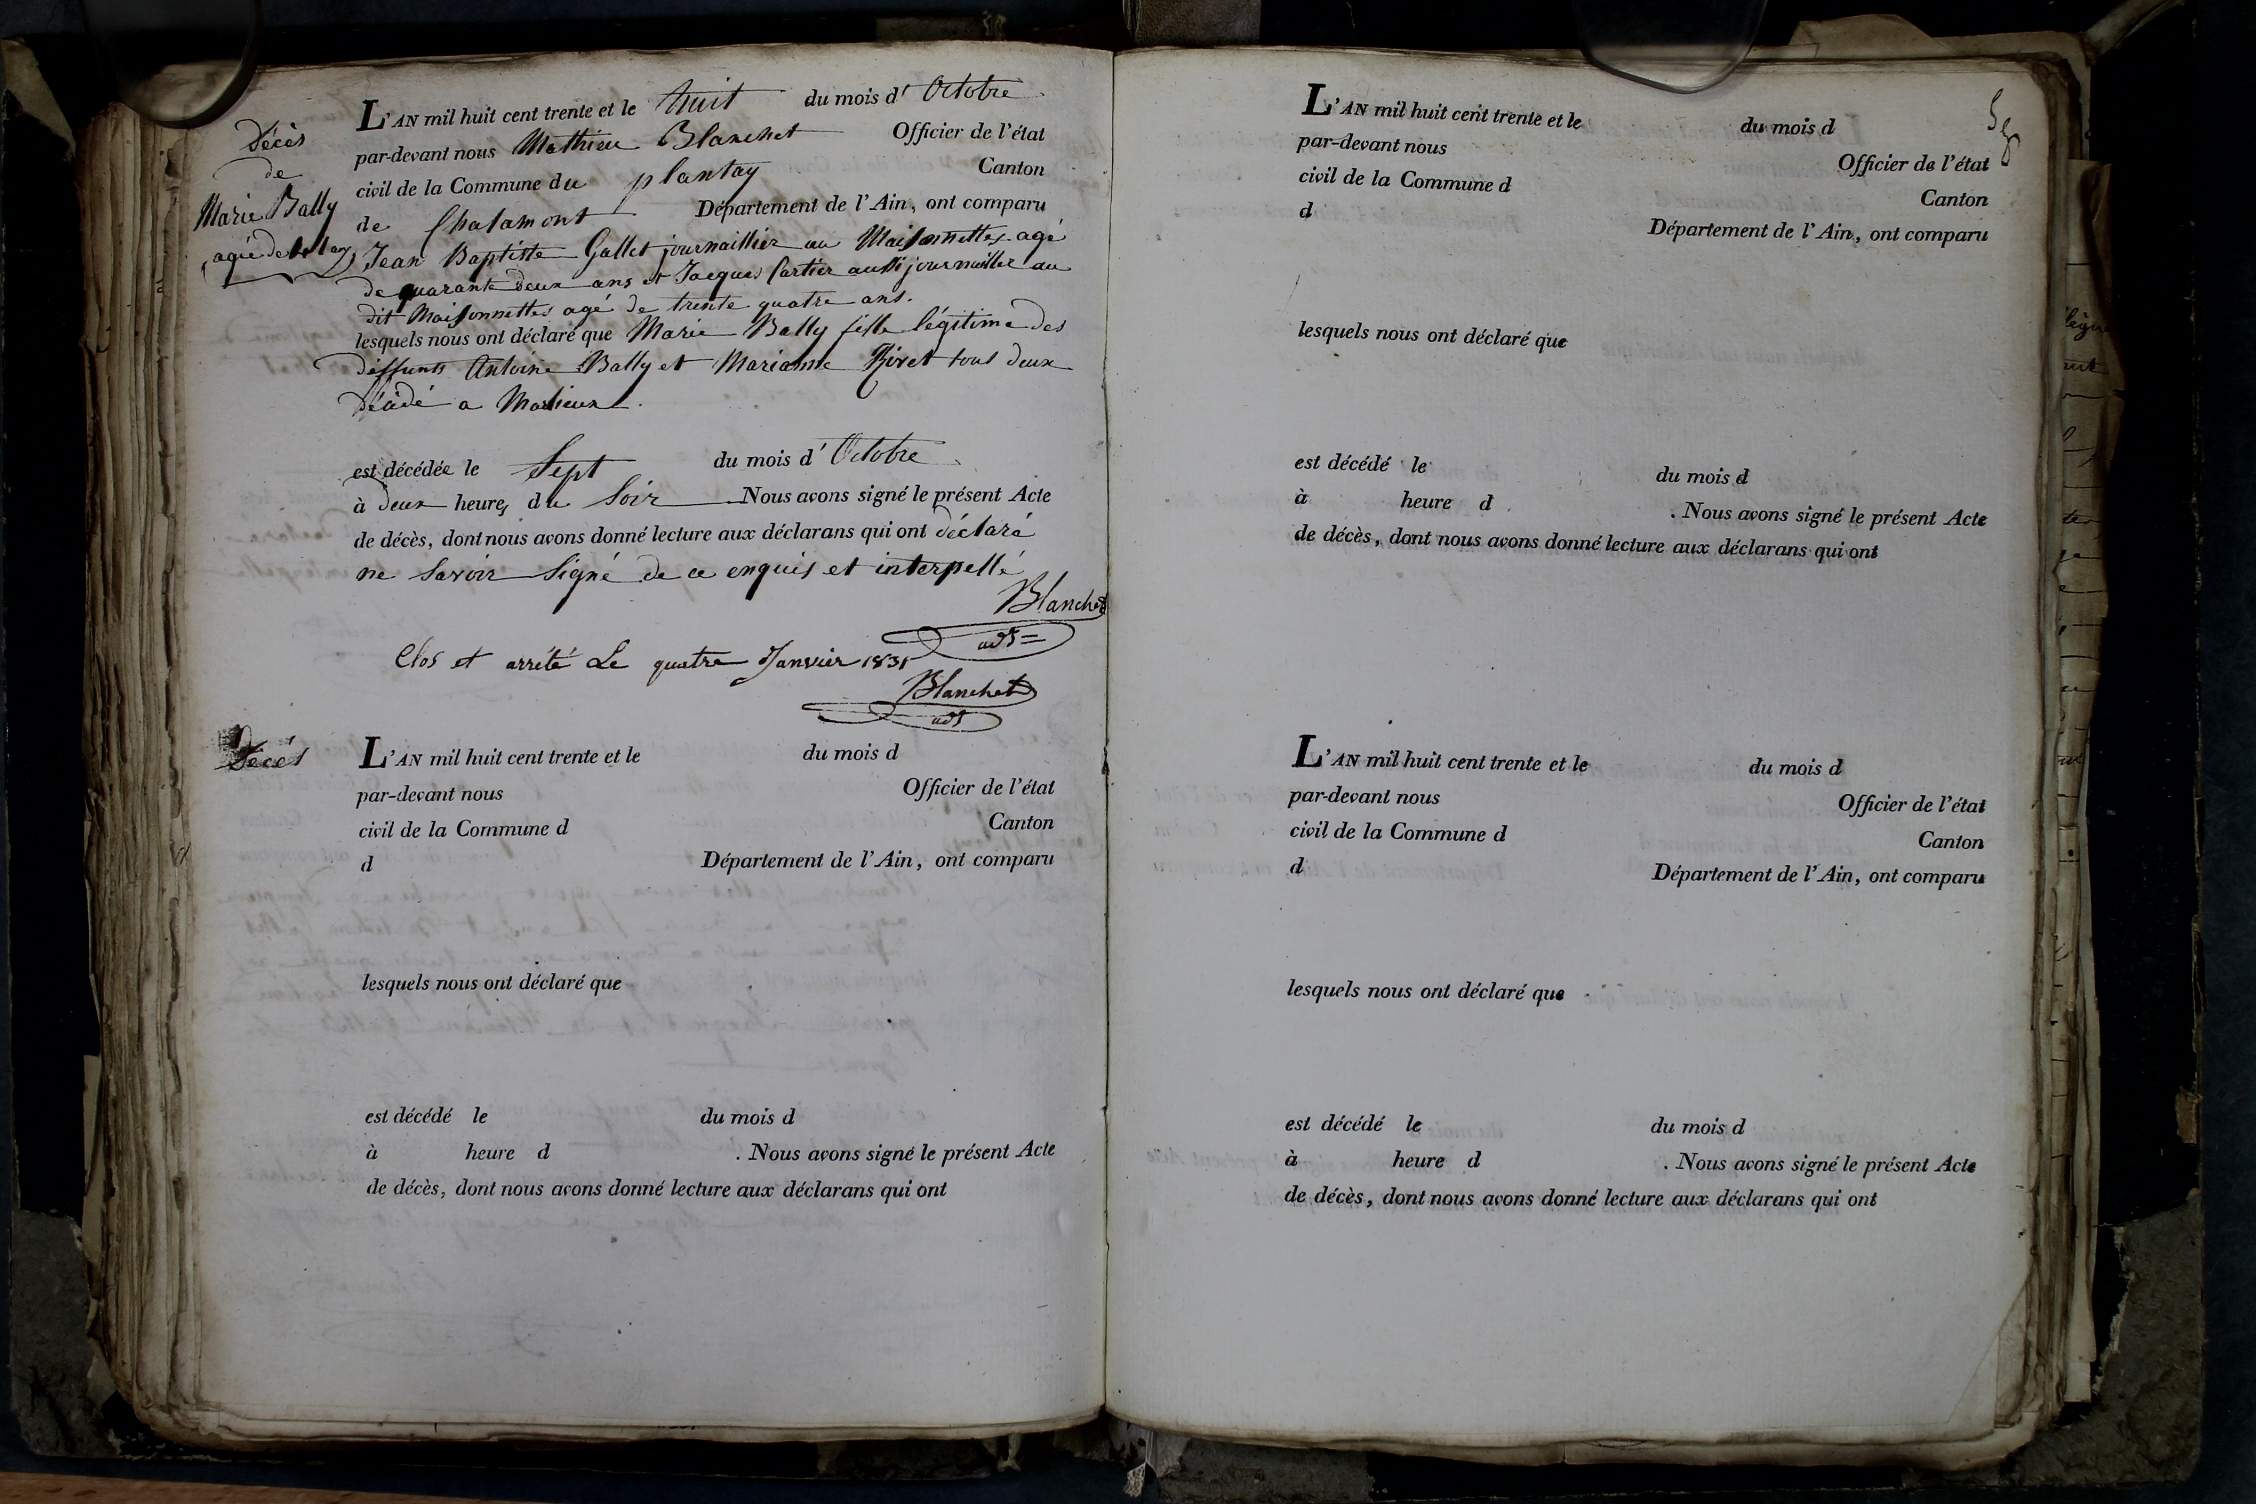 Décès
de
Marie Bally
agée de
L'AN mil huit cent trente et le huit du mois d'Octobre
par-devant nous Mathieu Blanchet Officier de l'état
civil de la Commune du plantay Canton
de Chalamont Département de l'Ain, ont comparu
Jean Baptiste Gallet journaillier au Maisonnettes agé
de quarante deux ans et Jacques Cartier aussi journaillier au
dit Maisonnettes agé de trente quatre ans.
lesquels nous ont déclaré que Marie Bally fille légitime des
deffunts Antoine Bally et Marianne Rivet tout deux
décédé a Marlieux.
est décédée le Sept du mois d'Octobre
à deux heures du Soir Nous avons signé le présent Acte
de décès, dont nous avons donné lecture aux déclarans qui ont déclaré
ne Savoir Signé de ce enquis et interpellé
Blanchet
adt
Clos et arrêté Le quatre Janvier 1831
Blanchet
adt
Décés
L'AN mil huit cent trente et le du mois d
par-devant nous Officier de l'état
civil de la Commune d Canton
d Département de l'Ain, ont comparu
lesquels nous ont déclaré que
est décédé le du mois d
à heure d . Nous avons signé le présent Acte
de décès, dont nous avons donné lecture aux déclarans qui ont
L'AN mil huit cent trente et le du mois d
par-devant nous Officier de l'état
civil de la Commune d Canton
d Département de l'Ain, ont comparu
lesquels nous ont déclaré que
est décédé le du mois d
à heure d . Nous avons signé le présent Acte
de décès, dont nous avons donné lecture aux déclarans qui ont
L'AN mil huit cent trente et le du mois d
par-devant nous Officier de l'état
civil de la Commune d Canton
d Département de l'Ain, ont comparu
lesquels nous ont déclaré que
est décédé le du mois d
à heure d . Nous avons signé le présent Acte
de décès, dont nous avons donné lecture aux déclarans qui ont